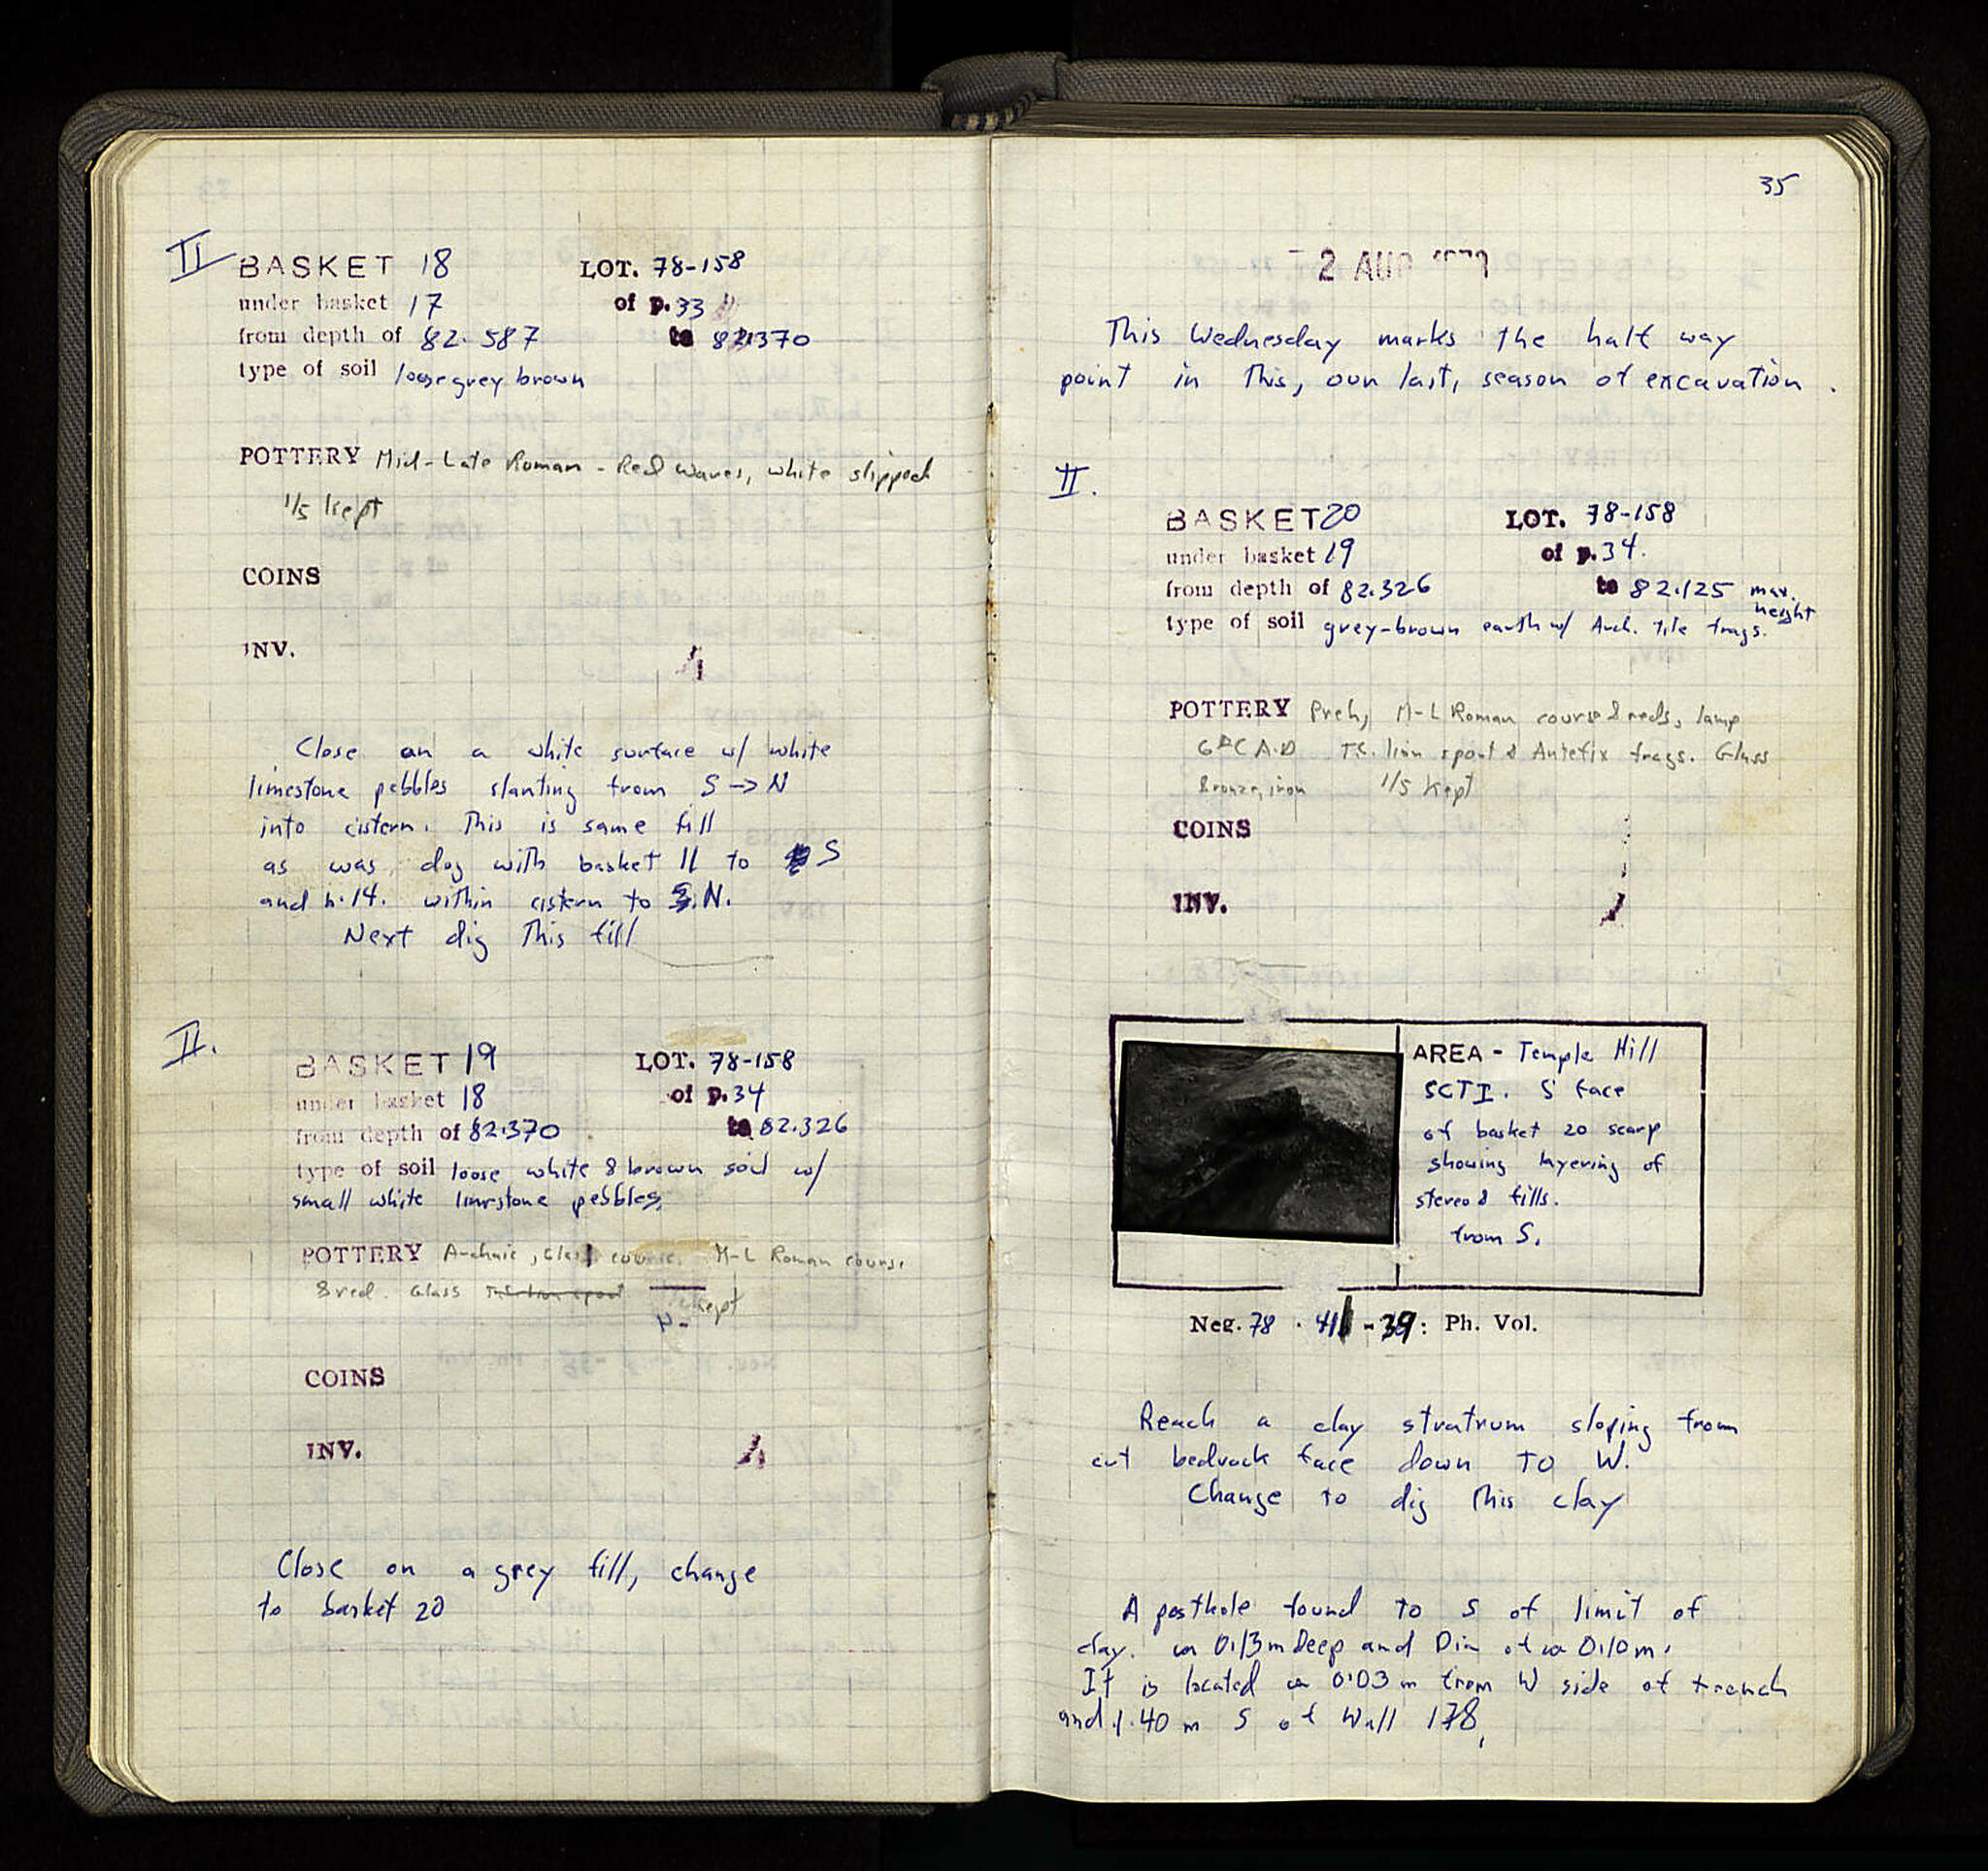 II BASKET 18 LOT. 78-158
under basket 17 of p. 33
from depth of 82.587 to 82.370
type of soil loose grey brown
POTTERY Mid-Late Roman - Red wares, white slipped
1/5 kept
COINS
INV.
Close on a white surface w/ white
limestone pebbles slanting from S -> N
into cistern. This is same fill
as was dug with basket 11 to S
and b. 14. within cistern to N.
Next dig This fill
II.
BASKET 19 LOT. 78-158
under basket 18 of p. 34
from depth of 82.370 to 82.326
type of soil loose white & brown soil w/
small white limestone pebbles
POTTERY Archaic, Glass course. M-L Roman course
& red. Glass kept
COINS
INV.
Close on a grey fill, change
to basket 20
35
2 AUG
This Wednesday marks the half way
point in This, our last, season of excavation.
II.
BASKET 20 LOT. 78-158
under basket 19 of p. 34.
from depth of 82.326 to 82.125 max. height
type of soil grey-brown earth w/ Arch. tile frags.
POTTERY Preh, M-L Roman course & reds, lamp
6th C A.D T.C. lion spout & Antefix frags. Glass
Bronze, iron 1/5 kept
COINS
INV.
AREA - Temple Hill
SCTI. S face
of basket 20 scarp
showing layering of
stereo & fills.
from S.
Neg. 78 - 39: Ph. Vol.
Reach a clay stratrum sloping from
cut bedrock face down TO W.
Change to dig This clay
A posthole found TO S of limit of
clay. ca 0.13 m Deep and Dia of ca 0.10 m.
It is located ca 0.03 m from W side of trench
and 1.40 m S of Wall 178.